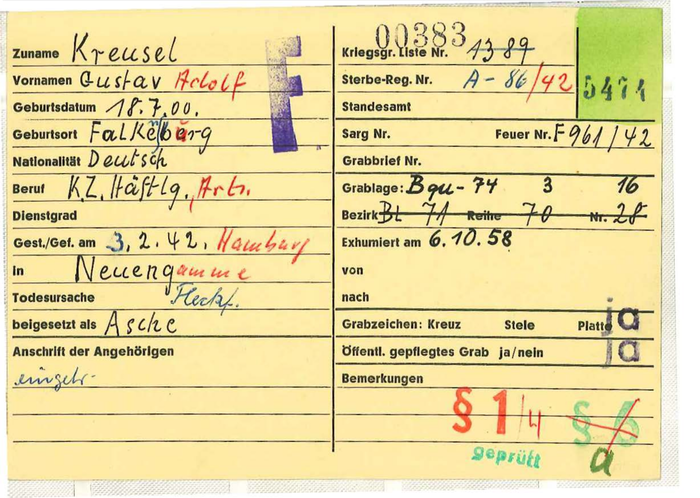 Zuname Kreusel
Vornamen Gustav Adolf
Geburtsdatum 18.7.00.
Geburtsort
Nationalität Deutsch
Beruf K.Z. Häftlg., Arb.
Dienstgrad
Gest./Gef. am 3.2.42. Hamburg
in Neuengamme
Todesursache Fleckf.
beigesetzt als Asche
Anschrift der Angehörigen
F
00383
Kriegsgr. Liste Nr. 1389
Sterbe-Reg. Nr. A-86/42
5474
Standesamt
Sarg Nr. Feuer Nr. F961/42
Grabbrief Nr.
Grablage: Bqu-74 3 16
Bezirk Bt 71 Reihe 70 Nr. 28
Exhumiert am 6.10.58
von
nach
Grabzeichen: Kreuz Stele Platte ja
Öffentl. gepflegtes Grab ja/nein ja
Bemerkungen
§ 1/4 § 6
geprüft a